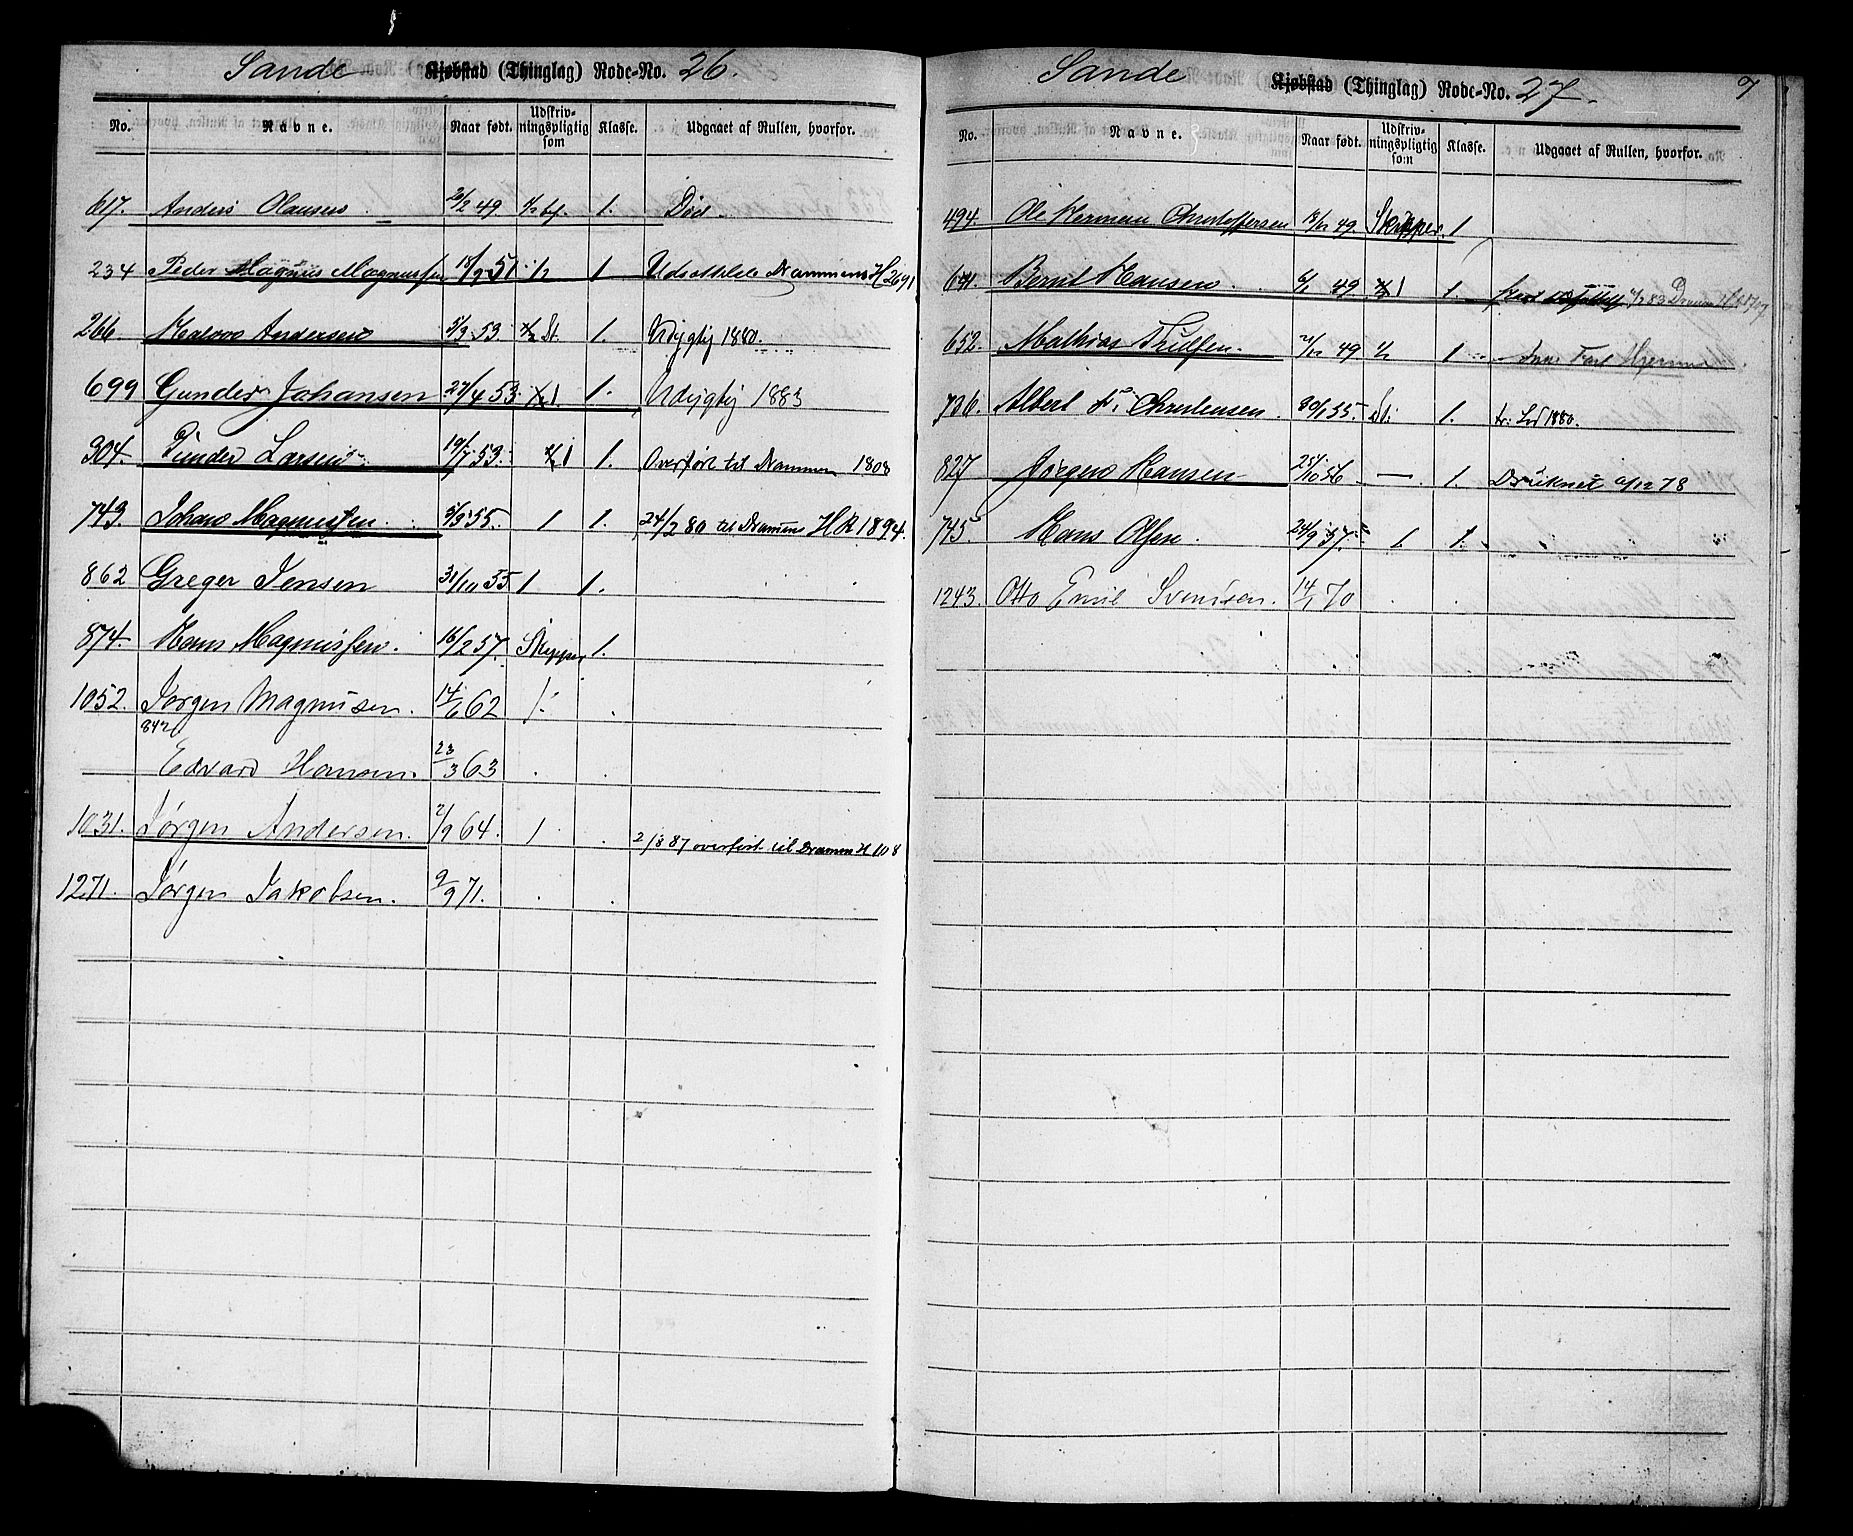 Sande Kjøbstad (Thinglag) Rode-No. 26.
No. Navne. Naar født. Udskrivningspligtig som Klasse. Udgaaet af Rullen, hvorfor.
617. Anders Olausen 49 1. Død.
234 Peder Magnus Magnussen 18/9 51 1/2 1 H 2691
266. Andersen 5/3 53 St. 1. Udygtig 1880.
699 Gunder Johansen 27/4 53 1 1. Udygtig 1883
304. Gunder Larsen 19/7 53. 1 1. Overført til Drammen 1808
743. Johan Magnussen 3/9 55. 1 1. 24/2 80 til Dramens H R 1894.
862 Greger Jensen 31/10 55 1 1.
874. Hans Magnussen. 16/2 57. Skipper 1.
1052. Jørgen Magnusen. 14/6 62 1.
842
Edvard Hansen. 23/3 63
1031. Jørgen Andersen. 2/9 64. 1 2/3 87 overført til Drammen H 108
1271. Jørgen Jakobsen. 9/9 71.
Sande Kjøbstad (Thinglag) Rode-No. 27. 7
No. Navne. Naar født. Udskrivningspligtig som Klasse. Udgaaet af Rullen, hvorfor.
494. Ole Herman Christoffersen 49 Skipper. 1
Bernt Hansen 49 1 1.
652. Mathias 49 1/2 1
736. Albert Christensen. 30/1 55. St. 1. 1880.
827 Jørgen Hansen 25/10 56 — 1. Druknet 78
745. Hans Olsen. 24/9 57. 1. 1.
1243. Otto Emil Svendsen. 14/1 70